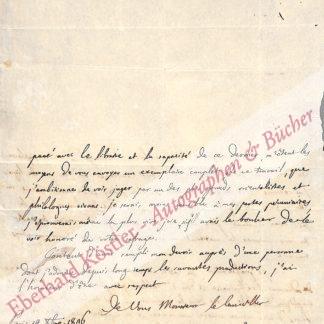 passé avec le libraire et la rapacité de ce dernier, m'ôtent les
moyens de vous envoyer un exemplaire complet de ce travail, que
j'ambitionne de voir juger par un des plus grands orientalistes et
philologues vivans. Je serais moins sensible à mes pertes pécuniaires
j'éprouverais même la plus vive joie, si j'avais le bonheur de le
voir honoré de votre suffrage.
Content d'avoir rempli mon devoir auprès d'une personne
dont j'admire depuis long temps les savantes productions, j'ai
l'honneur d'être avec respect
De Vous Monsieur le Conseiller
1806
Eberhard Köstler - Autographen & Bücher